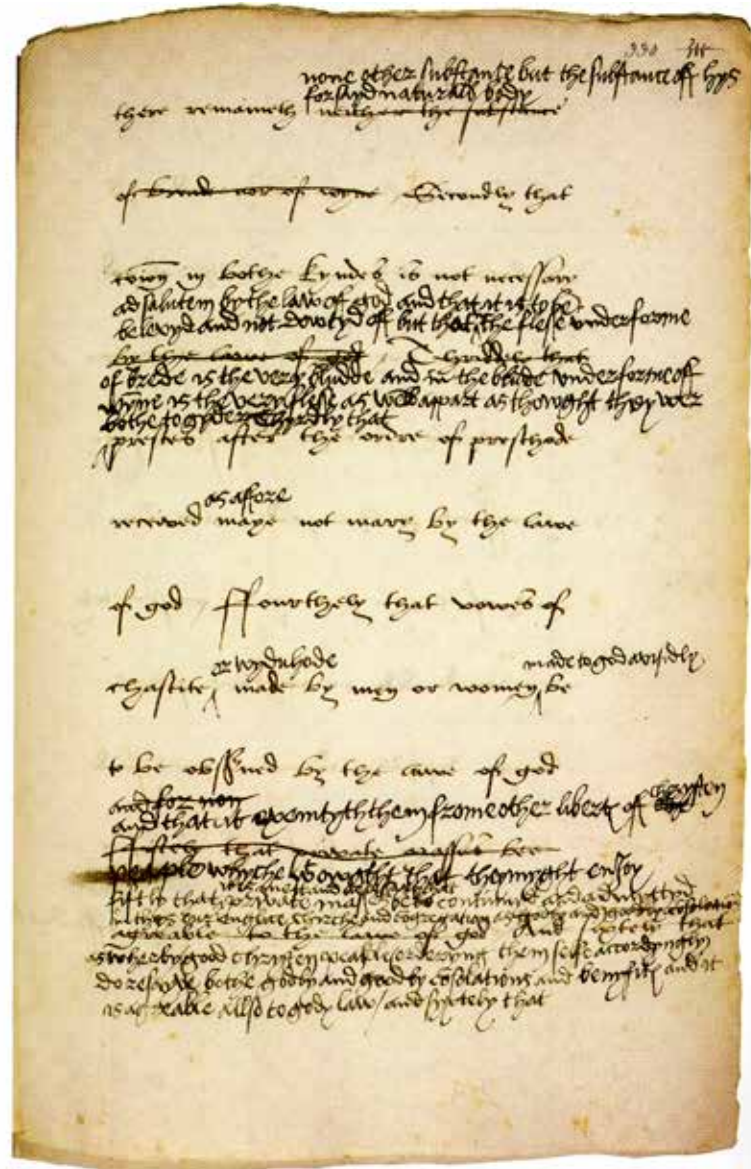 330
none other substance but the substance off hys
forsayd naturall body
there remaineth neither the substance
of brede nor of wyne / Secondly that
coïon in bothe kyndes is not necessary
ad salutem by the law of god and that it is to be
belevyd and not dowtyd off but that the flese under forme
by the lawe of god / Thriddely that
of brede is the very bludde and in the blude under forme off
wyne is the very flese as well appart as thowght they wer
bothe to gyder thyrdly that
prestes after the ordre of presthode
as afore
receved maye not mary by the lawe
of god / Ffourthely that vowes of
or wyduhode made to god avisydly
chastite made by men or women be
to be observed by the lawe of god
and for non
and that it exemtyth them frome other liberty of chrysten
Fiftely that private masses bee
peaple whyche with owght that they myght enjoy
fiftly that private masses be to continuid and admyttyd
in thys our englice chirche and congregation as godly and
agreable to the lawe of god And sixtely that
wherby good chrysten peaple orderyng them selfe accordyngly
do resyve bothe godly and goodly cosolations and benyfits and it
is agreable allso to gods law / and syxtely that